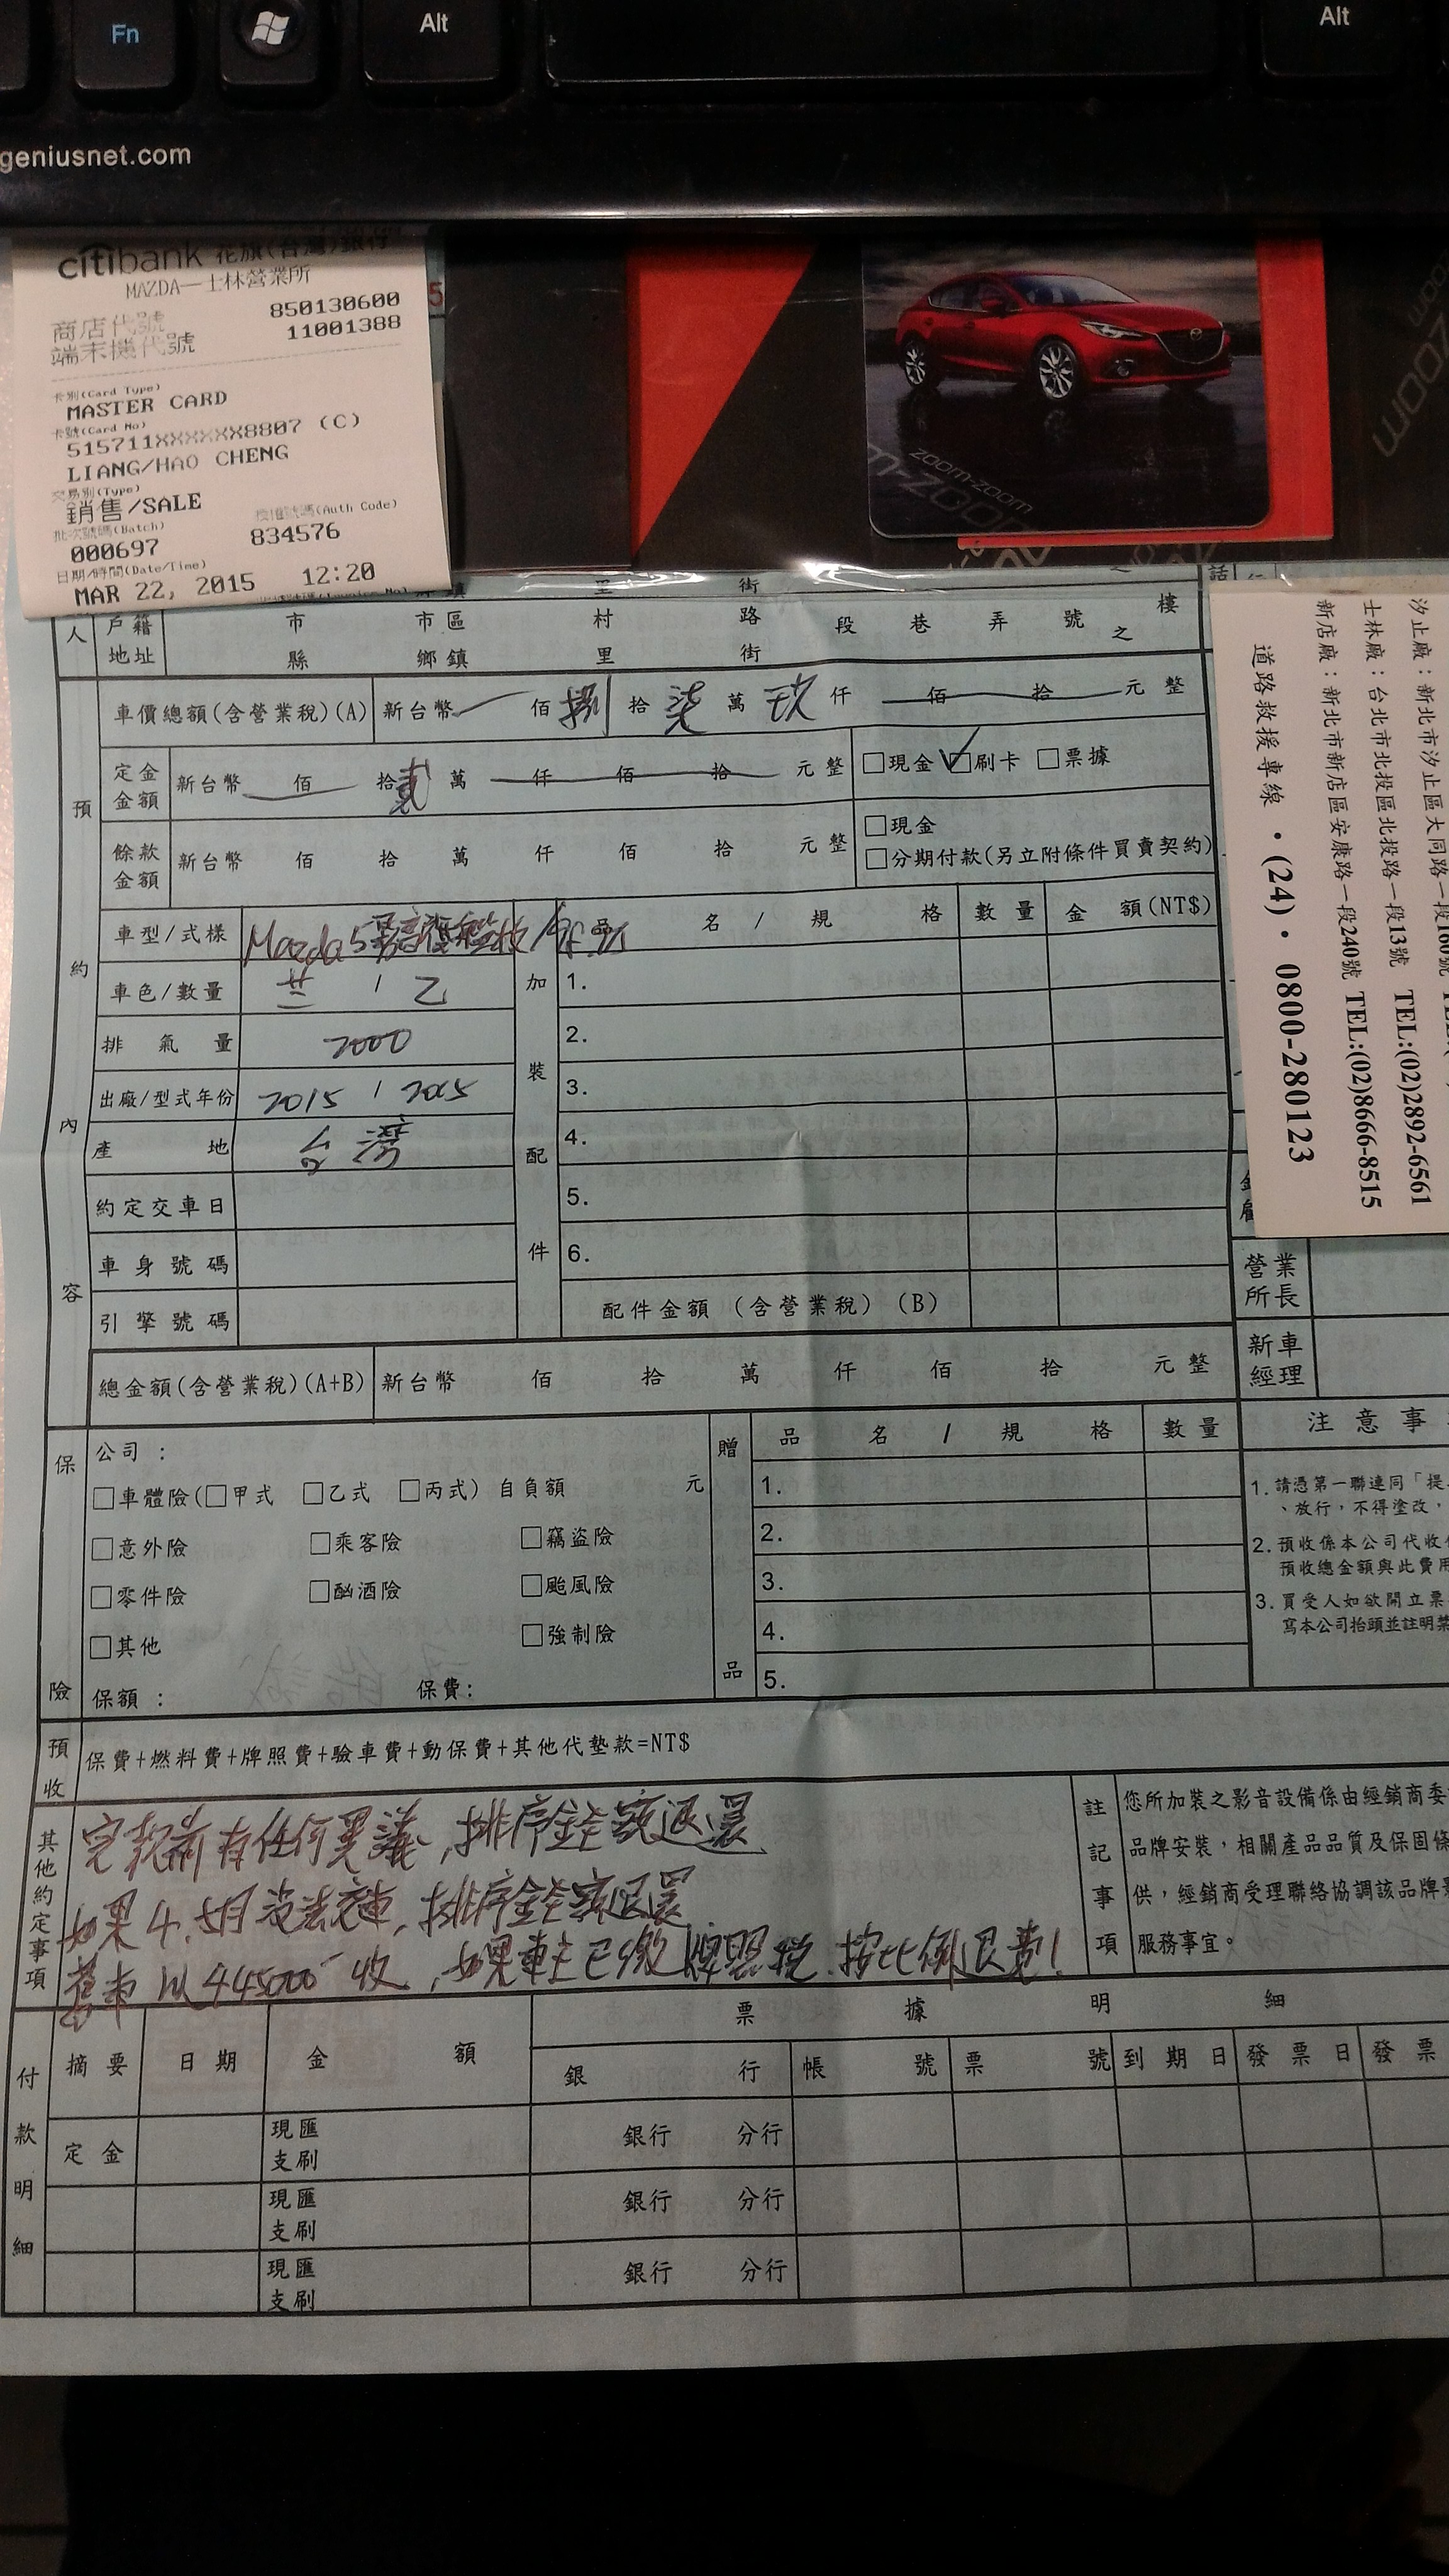 Fn Alt Alt
geniusnet.com
citibank 花旗(台灣)銀行
MAZDA—士林營業所
商店代號 850130600
端末機代號 11001388
卡別(Card Type)
MASTER CARD
卡號(Card No)
515711XXXXXX8807 (C)
LIANG/HAO CHENG
交易別(Type)
銷售/SALE
批次號碼(Batch) 授權號碼(Auth Code)
000697 834576
日期/時間(Date/Time)
MAR 22, 2015 12:20
zoom-zoom
汐止廠：新北市汐止區大同路一段
士林廠：台北市北投區北投路一段13號 TEL:(02)2892-6561
新店廠：新北市新店區安康路一段240號 TEL:(02)8666-8515
道路救援專線・(24)・0800-280123
人 戶籍地址 市縣 市區鄉鎮 村里 路街 段 巷 弄 號 樓之
預約內容
車價總額(含營業稅)(A) 新台幣 佰 捌 拾 柒 萬 玖 仟 佰 拾 元整
定金金額 新台幣 佰 拾 貳 萬 仟 佰 拾 元整 □現金 □刷卡 □票據
餘款金額 新台幣 佰 拾 萬 仟 佰 拾 元整 □現金
□分期付款(另立附條件買賣契約)
車型/式樣 Mazda5
加裝配件 品名/規格 數量 金額(NT$)
車色/數量 1
1.
排氣量 2000
2.
出廠/型式年份 2015 / 2015
3.
產地 台灣
4.
約定交車日
5.
車身號碼
6.
引擎號碼
配件金額 (含營業稅) (B)
總金額(含營業稅)(A+B) 新台幣 佰 拾 萬 仟 佰 拾 元整
營業所長
新車經理
保險
公司：
□車體險(□甲式 □乙式 □丙式) 自負額 元
□意外險 □乘客險 □竊盜險
□零件險 □酗酒險 □颱風險
□其他 □強制險
保額： 保費：
贈品 品名/規格 數量
1.
2.
3.
4.
5.
注意事
1.請憑第一聯連同「提
、放行，不得塗改，
2.預收係本公司代收
預收總金額與此費用
3.買受人如欲開立票
寫本公司抬頭並註明禁
預收 保費+燃料費+牌照費+驗車費+動保費+其他代墊款=NT$
其他約定事項
完款前有任何異議,排序金全額退還
如果4.5月沒法交車,排序金全額退還
舊車以445000收,如果車主已繳牌照稅.按比例退費!
註記事項
您所加裝之影音設備係由經銷商委
品牌安裝，相關產品品質及保固條
供，經銷商受理聯絡協調該品牌
服務事宜。
付款明細
摘要 日期 金額 票據明細
銀行 帳號 票號 到期日 發票日 發票
定金 現匯支刷 銀行 分行
現匯支刷 銀行 分行
現匯支刷 銀行 分行